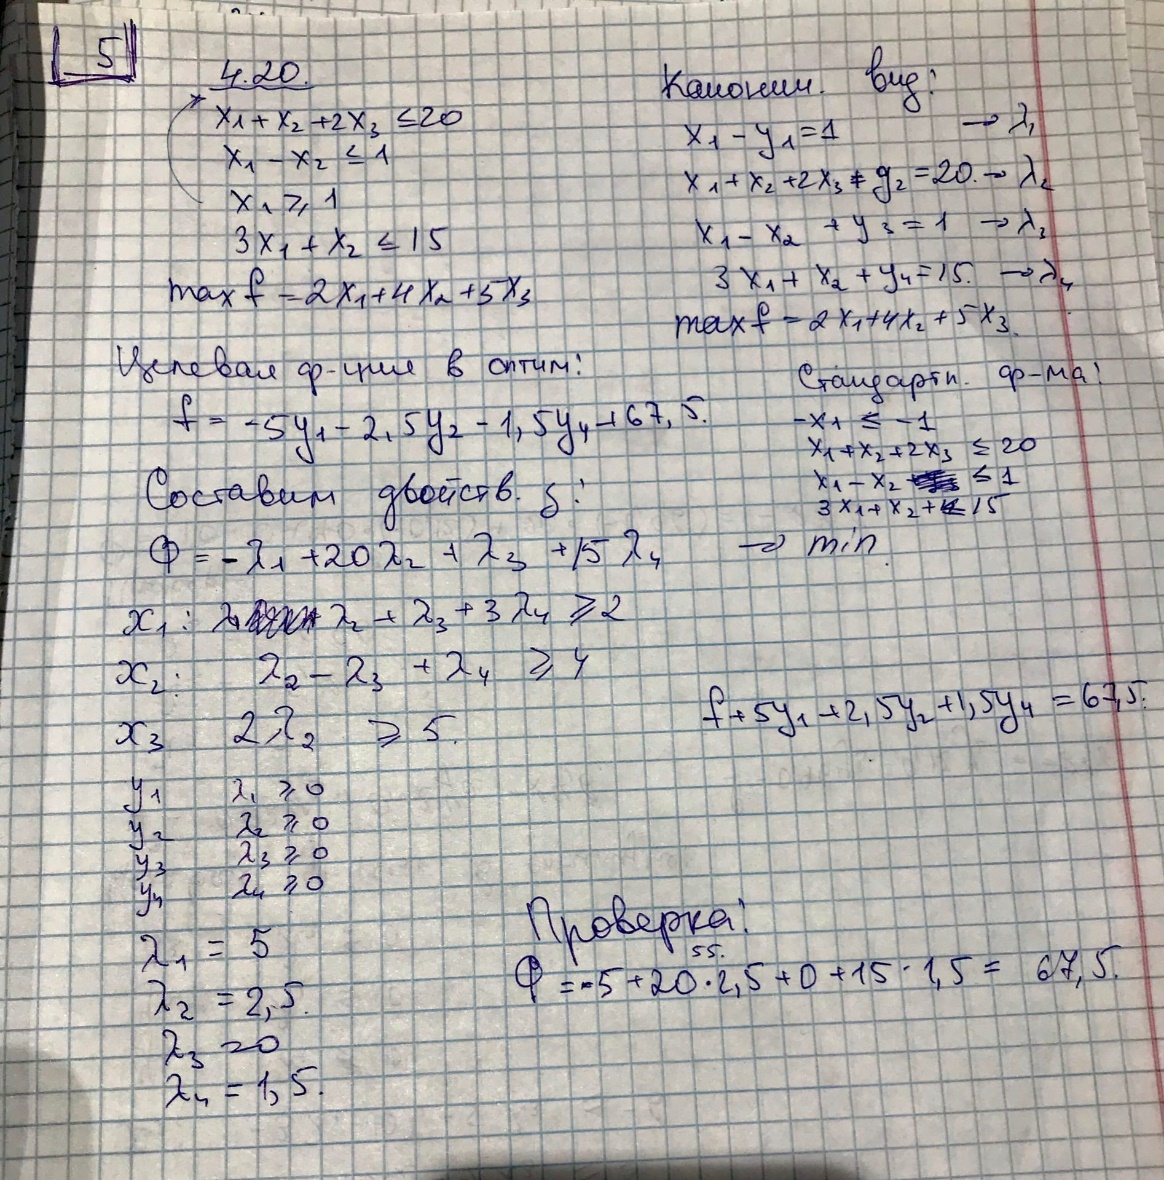 5
4.20.
x₁ + x₂ + 2x₃ ≤ 20
x₁ - x₂ ≤ 1
x₁ ≥ 1
3x₁ + x₂ ≤ 15
max f = 2x₁ + 4x₂ + 5x₃
Канонич. вид:
x₁ - y₁ = 1 → λ₁
x₁ + x₂ + 2x₃ + y₂ = 20. → λ₂
x₁ - x₂ + y₃ = 1 → λ₃
3x₁ + x₂ + y₄ = 15. → λ₄
max f = 2x₁ + 4x₂ + 5x₃.
Целевая ф-ция в оптим:
f = -5y₁ - 2,5y₂ - 1,5y₄ + 67,5.
Стандартн. ф-ма:
-x₁ ≤ -1
x₁ + x₂ + 2x₃ ≤ 20
x₁ - x₂ ≤ 1
3x₁ + x₂ + ≤ 15
Составим двойств. з:
Φ = -λ₁ + 20λ₂ + λ₃ + 15λ₄ → min
x₁: λ₂ + λ₃ + 3λ₄ ≥ 2
x₂: λ₂ - λ₃ + λ₄ ≥ 4
x₃ 2λ₂ ≥ 5.
f + 5y₁ + 2,5y₂ + 1,5y₄ = 67,5.
y₁ λ₁ ≥ 0
y₂ λ₂ ≥ 0
y₃ λ₃ ≥ 0
y₄ λ₄ ≥ 0
λ₁ = 5
λ₂ = 2,5.
λ₃ = 0
λ₄ = 1,5.
Проверка:
55.
Φ = -5 + 20·2,5 + 0 + 15·1,5 = 67,5.